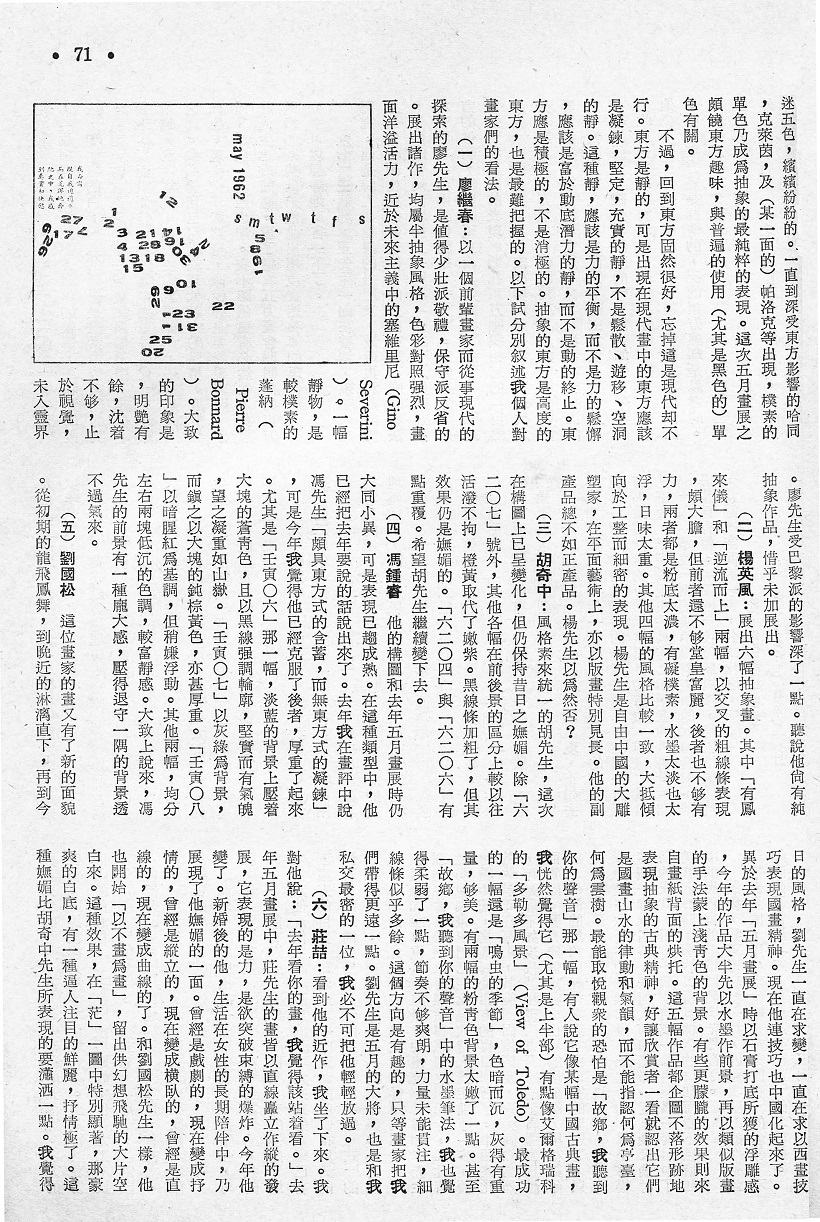 • 71 •
迷五色,繽繽紛紛的。一直到深受東方影響的哈同
,克萊茵,及(某一面的)帕洛克等出現,樸素的
單色乃成爲抽象的最純粹的表現。這次五月畫展之
頗饒東方趣味,與普遍的使用(尤其是黑色的)單
色有關。
不過,回到東方固然很好,忘掉這是現代却不
行。東方是靜的,可是出現在現代畫中的東方應該
是凝鍊,堅定,充實的靜,不是鬆散、遊移、空洞
的靜。這種靜,應該是力的平衡,而不是力的鬆懈
,應該是富於動底潛力的靜,而不是動的終止。東
方應是積極的,不是消極的。抽象的東方是高度的
東方,也是最難把握的。以下試分別叙述我個人對
畫家們的看法。
(一)廖繼春:以一個前輩畫家而從事現代的
探索的廖先生,是值得少壯派敬禮,保守派反省的
。展出諸作,均屬半抽象風格,色彩對照强烈,畫
面洋溢活力,近於未來主義中的塞維里尼(Gino
Severini
)。一幅
靜物,是
較樸素的
蓬納(
Pierre
Bonnard
)。大致
的印象是
,明艷有
餘,沈着
不够,止
於視覺,
未入靈界
may 1962
s m t w t f s
。廖先生受巴黎派的影響深了一點。聽說他尚有純
抽象作品,惜乎未加展出。
(二)楊英風:展出六幅抽象畫。其中「有鳳
來儀」和「逆流而上」兩幅,以交叉的粗線條表現
,頗大膽,但前者還不够堂皇富麗,後者也不够有
力,兩者都是粉底太濃,有礙樸素,水墨太淡也太
浮,日味太重。其他四幅的風格比較一致,大抵傾
向於工整而細密的表現。楊先生是自由中國的大雕
塑家,在平面藝術上,亦以版畫特別見長。他的副
產品總不如正產品。楊先生以爲然否?
(三)胡奇中:風格素來統一的胡先生,這次
在構圖上已呈變化,但仍保持昔日之嫵媚。除「六
二〇七」號外,其他各幅在前後景的區分上較以往
活潑不拘,橙黃取代了嫩紫。黑線條加粗了,但其
效果仍是嫵媚的。「六二〇四」與「六二〇六」有
點重覆。希望胡先生繼續變下去。
(四)馮鍾睿 他的構圖和去年五月畫展時仍
大同小異,可是表現已趨成熟。在這種類型中,他
已經把去年要說的話說出來了。去年我在畫評中說
馮先生「頗具東方式的含蓄,而無東方式的凝鍊」
,可是今年我覺得他已經克服了後者,厚重了起來
。尤其是「壬寅〇六」那一幅,淡藍的背景上壓着
大塊的蒼靑色,且以黑線强調輪廓,堅實而有氣魄
,望之凝重如山嶽。「壬寅〇七」以灰綠爲背景,
而鎭之以大塊的鈍棕黃色,亦甚厚重。「壬寅〇八
」以暗腥紅爲基調,但稍嫌浮動。其他兩幅,均分
左右兩塊低沉的色調,較富靜感。大致上說來,馮
先生的前景有一種龐大感,壓得退守一隅的背景透
不過氣來。
(五)劉國松 這位畫家的畫又有了新的面貌
。從初期的龍飛鳳舞,到晚近的淋漓直下,再到今
日的風格,劉先生一直在求變,一直在求以西畫技
巧表現國畫精神。現在他連技巧也中國化起來了。
異於去年「五月畫展」時以石膏打底所獲的浮雕感
,今年的作品大半先以水墨作前景,再以類似版畫
的手法蒙上淺靑色的背景。有些更朦朧的效果則來
自畫紙背面的烘托。這五幅作品都企圖不落形跡地
表現抽象的古典精神,好讓欣賞者一看就認出它們
是國畫山水的律動和氣韻,而不能指認何爲亭臺,
何爲雲樹。最能取悅觀衆的恐怕是「故鄉,我聽到
你的聲音」那一幅,有人說它像某幅中國古典畫,
我恍然覺得它(尤其是上半部)有點像艾爾格瑞科
的「多勒多風景」(View of Toledo)。最成功
的一幅還是「鳴虫的季節」,色暗而沉,灰得有重
量,够美。有兩幅的粉靑色背景太嫩了一點。甚至
「故鄉,我聽到你的聲音」中的水墨筆法,我也覺
得柔弱了一點,節奏不够爽朗,力量未能貫注,細
線條似乎多餘。這個方向是有趣的,只等畫家把我
們帶得更遠一點。劉先生是五月的大將,也是和我
私交最密的一位,我必不可把他輕輕放過。
(六)莊喆:看到他的近作,我坐了下來。我
對他說:「去年看你的畫,我覺得該站着看。」去
年五月畫展中,莊先生的畫皆以直線矗立作縱的發
展,它表現的是力,是欲突破束縛的爆炸。今年他
變了。新婚後的他,生活在女性的長期陪伴中,乃
展現了他嫵媚的一面。曾經是戲劇的,現在變成抒
情的,曾經是縱立的,現在變成橫臥的,曾經是直
線的,現在變成曲線的了。和劉國松先生一樣,他
也開始「以不畫爲畫」,留出供幻想飛馳的大片空
白來。這種效果,在「茫」一圖中特別顯著,那豪
爽的白底,有一種逼人注目的鮮麗,抒情極了。這
種嫵媚比胡奇中先生所表現的要瀟洒一點。我覺得